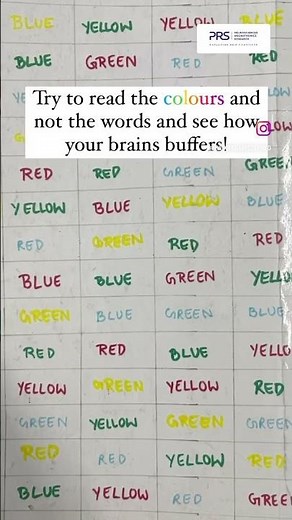 BLUE YELLOW YELLOW BLUE
PRS
BLUE GREEN RED RED
Try to read the colours and
not the words and see how
your brains buffers!
RED RED GREEN GREE
YELLOW BLUE YELLOW BLUE
RED GREEN RED RED
BLUE BLUE GREEN YELL
GREEN BLUE GREEN BLUE
RED RED BLUE YELLO
YELLOW GREEN YELLOW RED
GREEN YELLOW GREEN GREE
RED RED YELLOW RED
BLUE YELLOW RED GREE